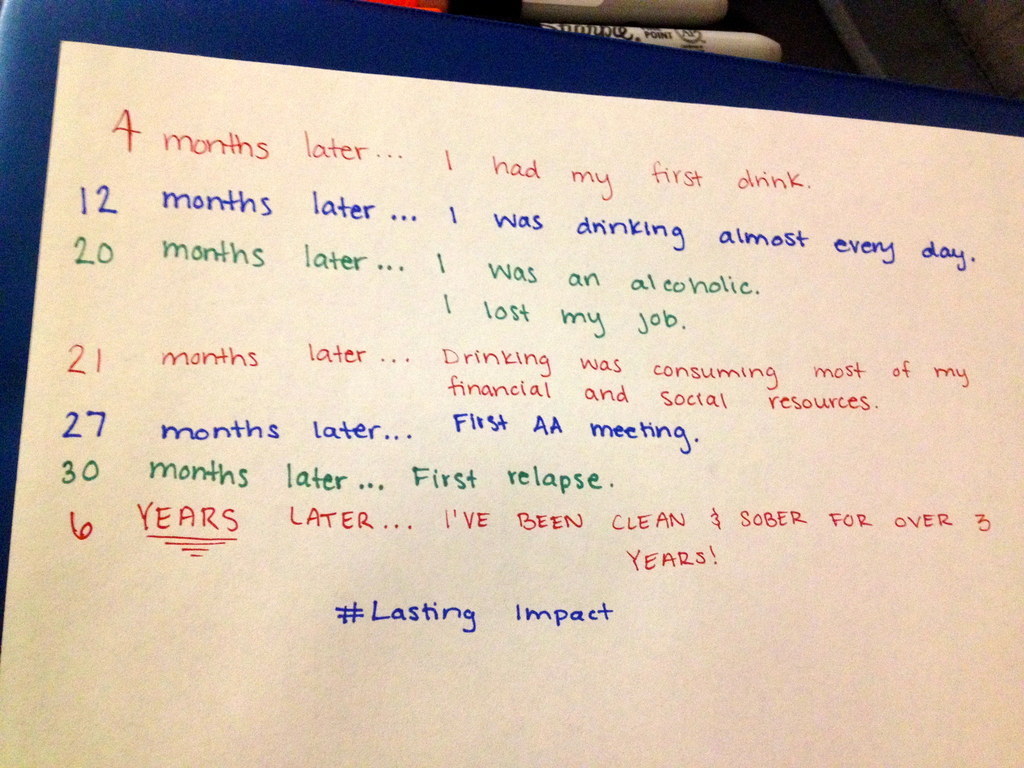 Sharpie. POINT AP
4 months later... I had my first drink.
12 months later... I was drinking almost every day.
20 months later... I was an alcoholic.
I lost my job.
21 months later... Drinking was consuming most of my
financial and social resources.
27 months later... First AA meeting.
30 months later... First relapse.
6 YEARS LATER... I'VE BEEN CLEAN & SOBER FOR OVER 3
YEARS!
#Lasting Impact